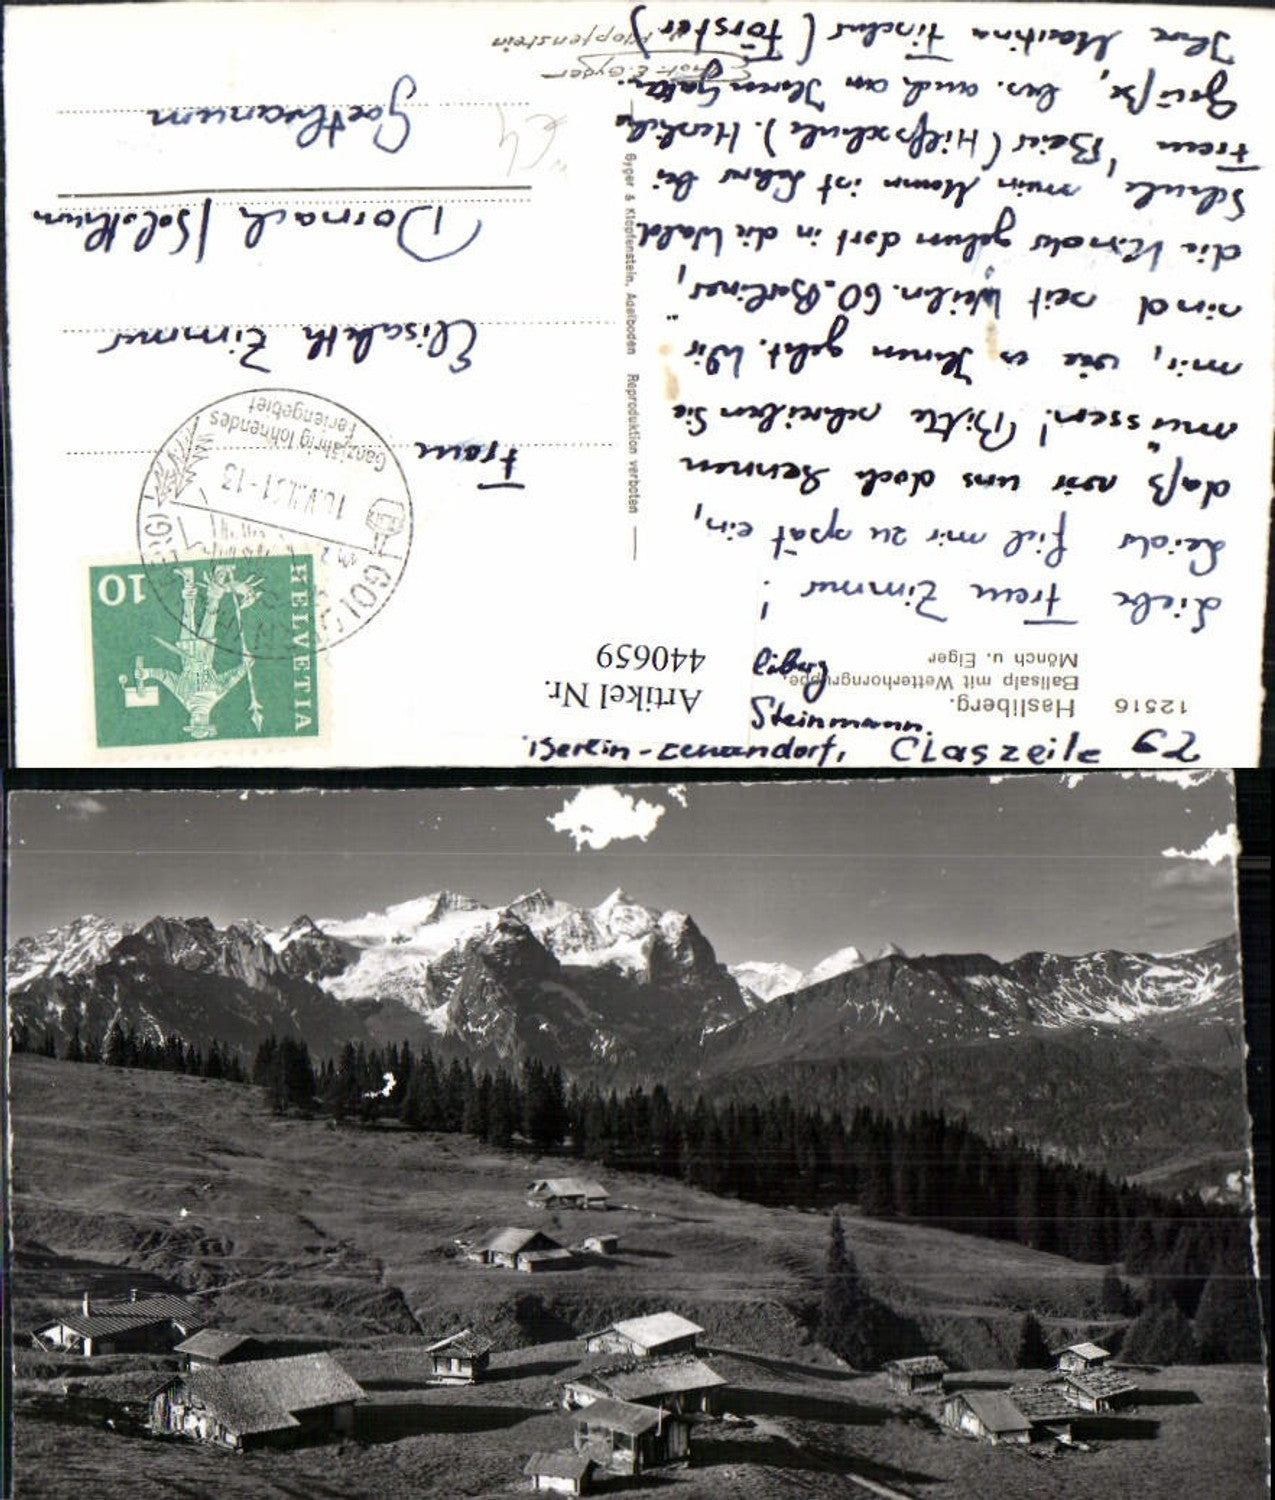 Berlin-Zehlendorf, Claszeile 29
Steinmann
12516 Hasliberg.
Balisalp mit Wetterhorngruppe,
Mönch u. Eiger
Artikel Nr.
440659
Liebe Frau Zimmer!
Leider fiel mir zu spät ein,
daß wir uns doch kennen
müssen! Bitte schreiben Sie
mir, wie es Ihnen geht. Wir
sind seit Weihn. 60 "Berliner",
die Kinder gehen dort in die Wald
Schule, mein Mann ist Lehrer bei
Frau Beier (Hilfsschule). Herzliche
Grüße, bes. auch an Ihren Gatten.
Ihre Martina Tischer (Förster)
Gyger & Klopfenstein, Adelboden Reproduktion verboten
HELVETIA
10
GOL
10.VII.61-13
Ganzjährig lohnendes
Feriengebiet
Frau
Elisabeth Zimmer
Dornach / Solothurn
Goetheanum
Phot. E. Gyger
Klopfenstein